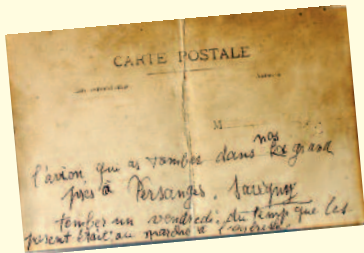 CARTE POSTALE
M
nos
l'avion qui as tomber dans les grand
près à Persanges. Savigny
tomber un vendredi du temp que les
parent était au marché à